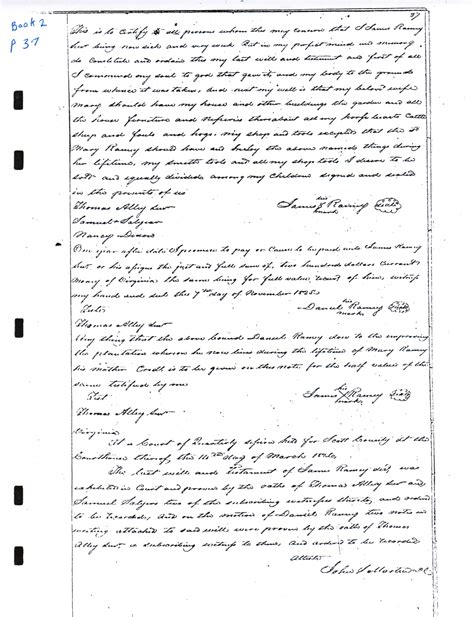 Book 2
p 37
37
This is to certify to all persons whom this may concern that I James Ramey
her being now sick and very weak But in my perfect mind and memory
do Constitute and ordain this my last will and testament and first of all
I commend my soul to god that gave it and my body to the grounds
from whence it was taken, and next my will is that my beloved wife
Mary should have my house and other buildings the garden and all
the house furniture and all my horse beasts Cattle
sheep and fouls and hogs. my shop and tools excepted that the Sd
Mary Ramey should have and the above named things during
her lifetime, my smiths tools and all my shop tools I desire to be
sold and equally divided among my Children signed and sealed
in the presents of us
Thomas Alley Sur
his
James X Ramey Seal
mark
Samuel Salyear
Nancy
One year after date I promise to pay or Cause to be paid unto James Ramey
Sur or his assigns the just and full sum of two hundred dollars Currant
Money of Virginia the same being for full value of him, witness
my hand and seal this 7th day of November 1825
Teste
his
Daniel Ramey Seal
mark
Thomas Alley Sur
Any thing that the above bound Daniel Ramey does to the improving
the plantation whereon he now lives during the lifetime of Mary Ramey
his mother Credit is to be given on this note for the half value of the
same testifyed by me
Test
his
James X Ramey Seal
mark
Thomas Alley Sur
Virginia
At a Court of Quarterly Session held for Scott County at the
Courthouse thereof, the day of March
The last will and Testament of James Ramey was
exhibited in Court and proven by the oaths of Thomas Alley Sur and
Samuel Salyers two of the subscribing witnesses thereto, and ordered
to be recorded, And on the motion of Daniel Ramey two notes in
writing attached to said will were proven by the oath of Thomas
Alley Sur a subscribing witness to them. And ordered to be recorded
Attest
John